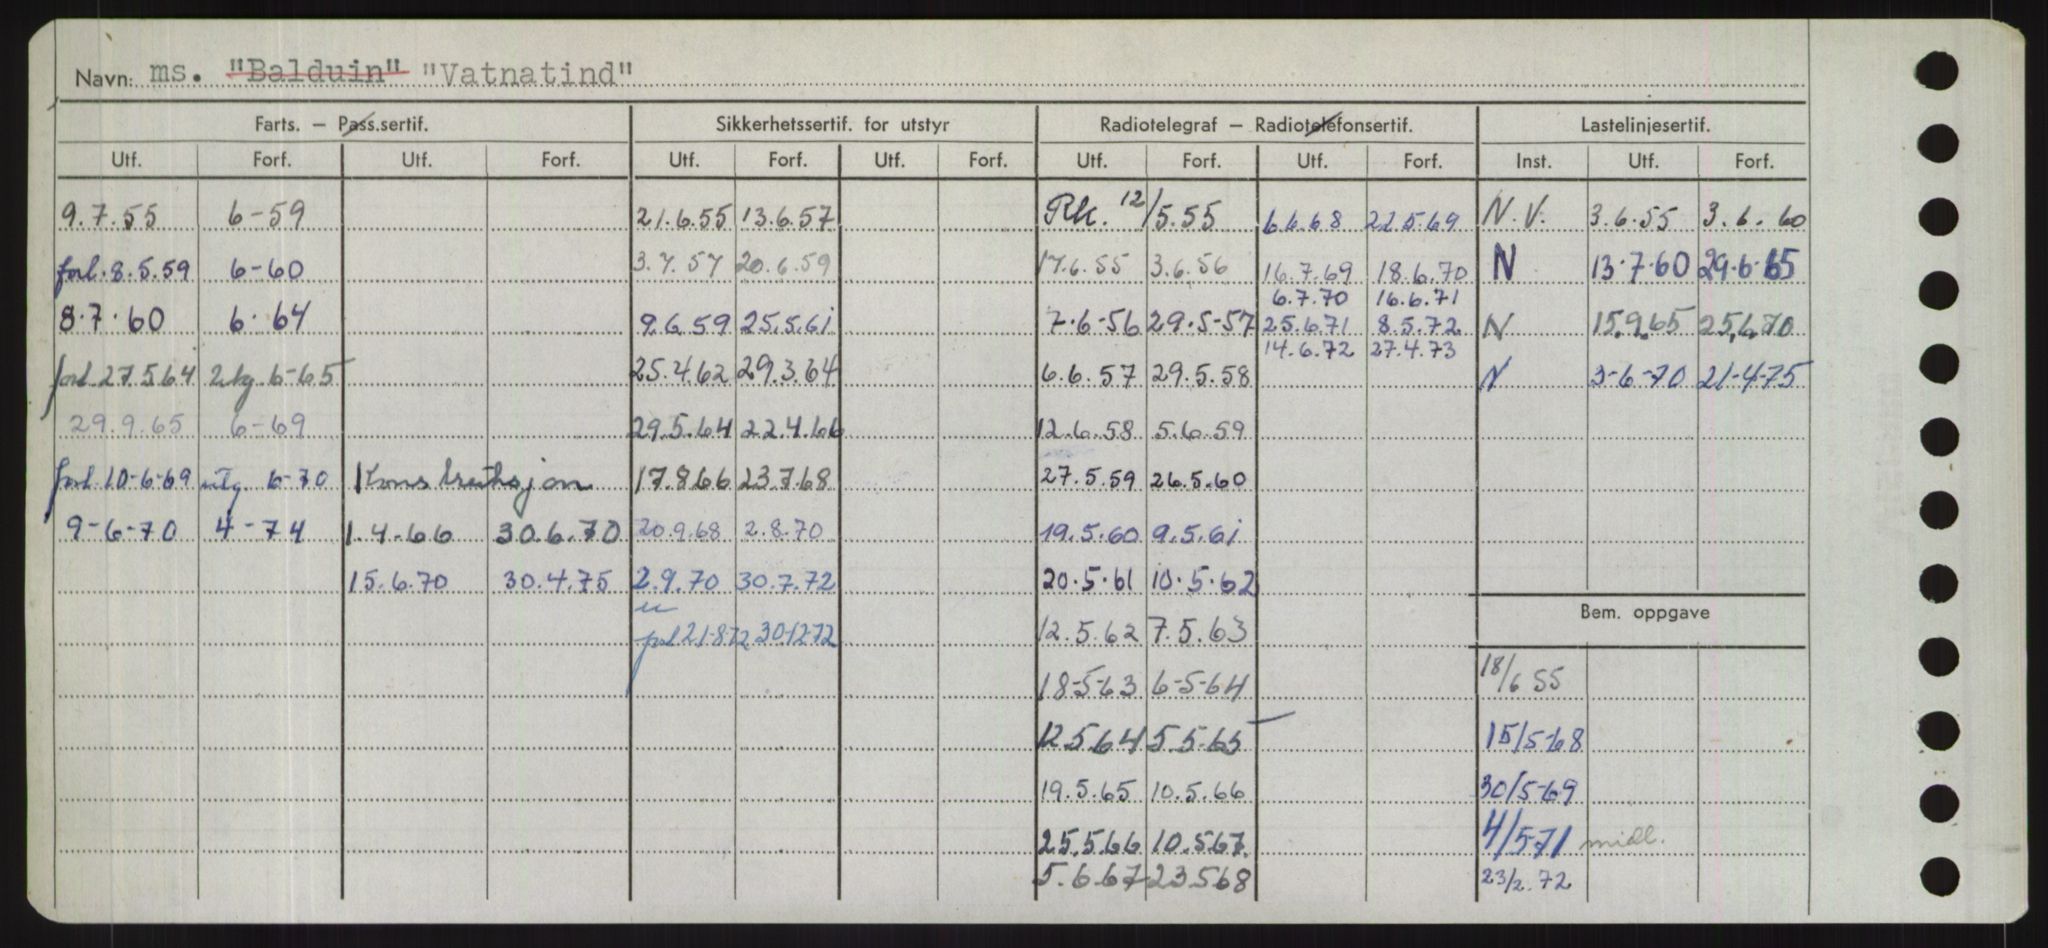 Navn: ms. "Balduin" "Vatnatind"
Farts. — Pass.sertif. Sikkerhetssertif. for utstyr Radiotelegraf — Radiotelefonsertif. Lastelinjesertif.
Utf. Forf. Utf. Forf. Utf. Forf. Utf. Forf. Utf. Forf. Utf. Forf. Inst. Utf. Forf.
9.7.55 6-59 21.6.55 13.6.57 RK. 12/5.55 6.6.68 22.5.69 N.V. 3.6.55 3.6.60
forl. 8.5.59 6-60 3.7.57 20.6.59 17.6.55 3.6.56 16.7.69 18.6.70 N 13.7.60 29.6.65
6.7.70 16.6.71
8.7.60 6.64 9.6.59 25.5.61 7.6-56 29.5-57 25.6.71 8.5.72 N 15.9.65 25.6.70
14.6.72 27.4.73
forl. 27.5.64 6-65 25.4.62 29.3.64 6.6.57 29.5.58 N 3-6-70 21-4-75
29.9.65 6-69 29.5.64 22.4.66 12.6.58 5.6.59
forl. 10-6-69 6-70 Konstruksjon 17.8.66 23.7.68 27.5.59 26.5.60
9-6-70 4-74 1.4.66 30.6.70 20.9.68 2.8.70 19.5.60 9.5.61
15.6.70 30.4.75 2.9.70 30.7.72 20.5.61 10.5.62
Bem. oppgave
forl 21-8-72 30-12-72 12.5.62 7.5.63
18-5-63 6-5-64 18/6 55
12.5.64 5.5-65 15/5-68
19.5.65 10.5.66 30/5-69
25.5.66 10.5.67. 4/5-71 midl.
5.6.67 23.5.68 23/2.72